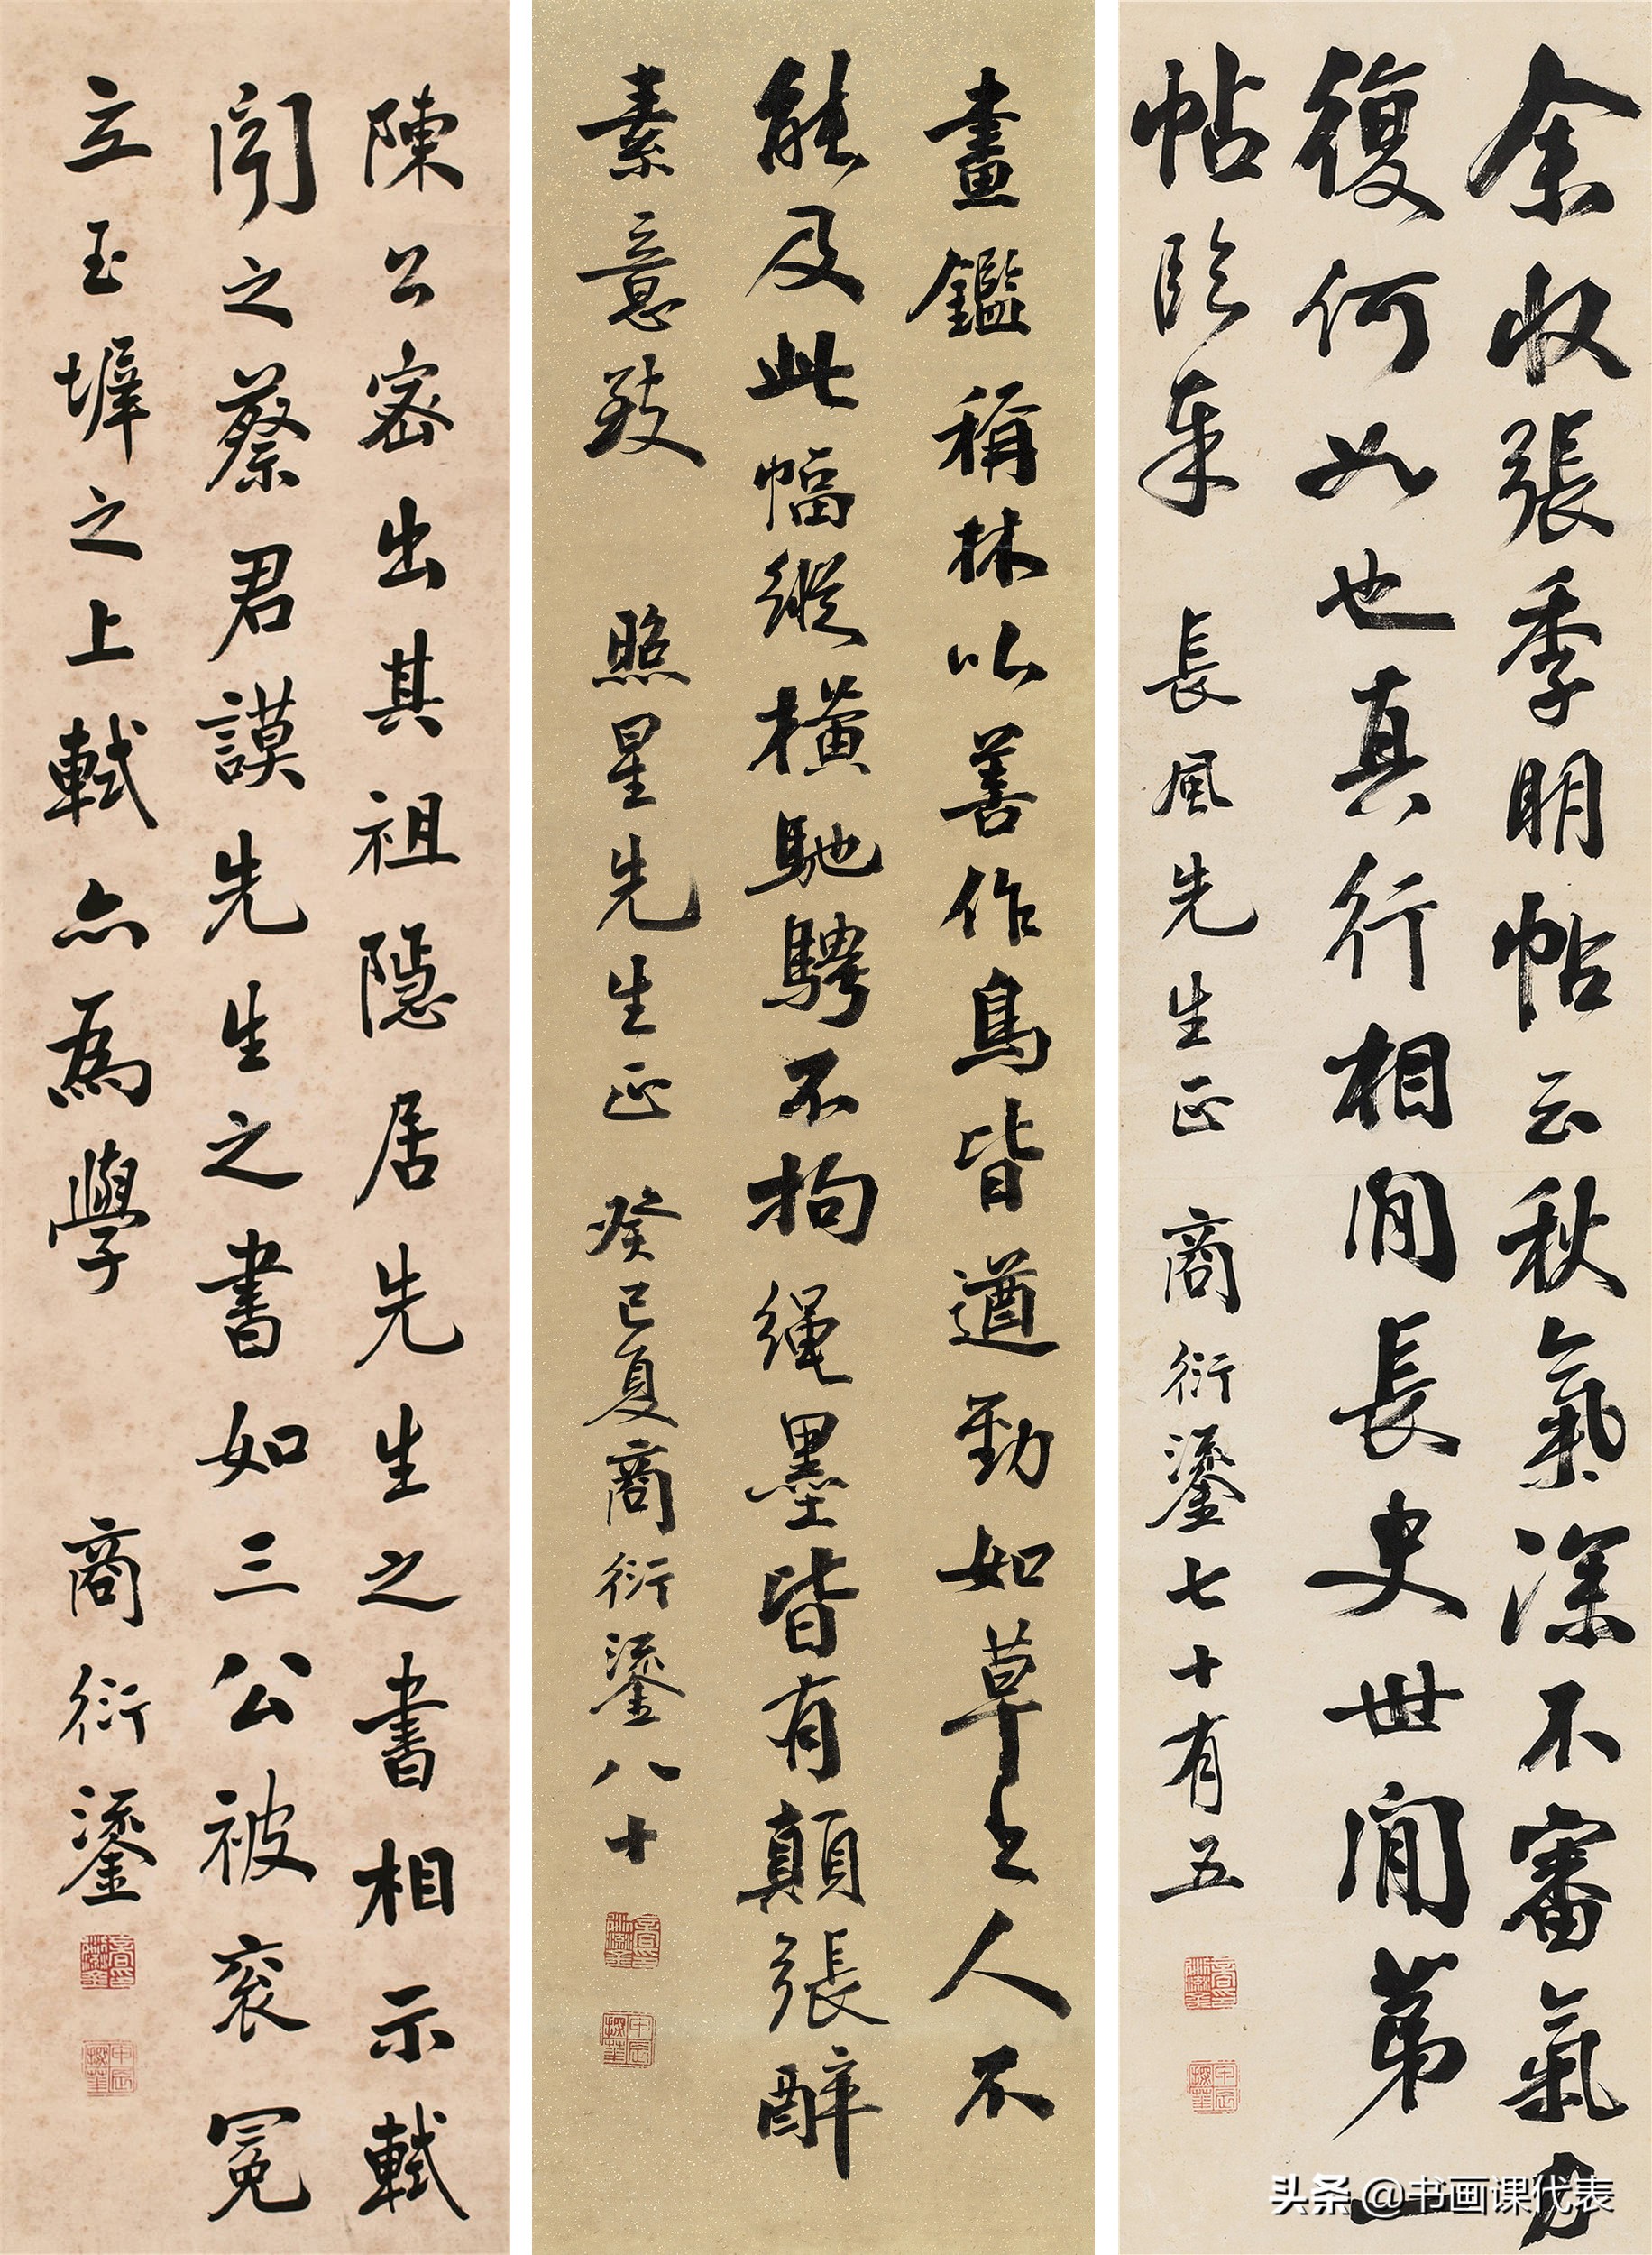 余收張季明帖云秋氣深不審氣力
復何如也真行相間長史世間第一
帖臨奉 長風先生正 商衍鎏七十有五
畫鑑稱林以善作鳥皆遒勁如草書人不
能及此幅縱橫馳騁不拘繩墨皆有顛張醉
素意致 照星先生正 癸巳夏商衍鎏八十
陳公密出其祖隱居先生之書相示軾
聞之蔡君謨先生之書如三公被衮冕
立玉墀之上軾亦為學 商衍鎏
头条 @书画课代表